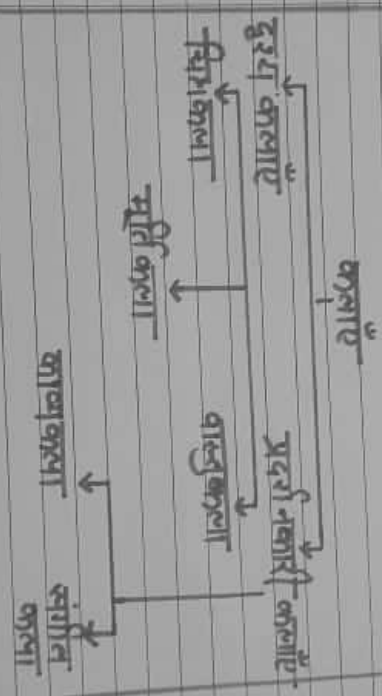 कलाएँ
दृश्य कलाएँ
प्रदर्शनकारी कलाएँ
चित्रकला
मूर्तिकला
वास्तुकला
काव्यकला
संगीत
कला